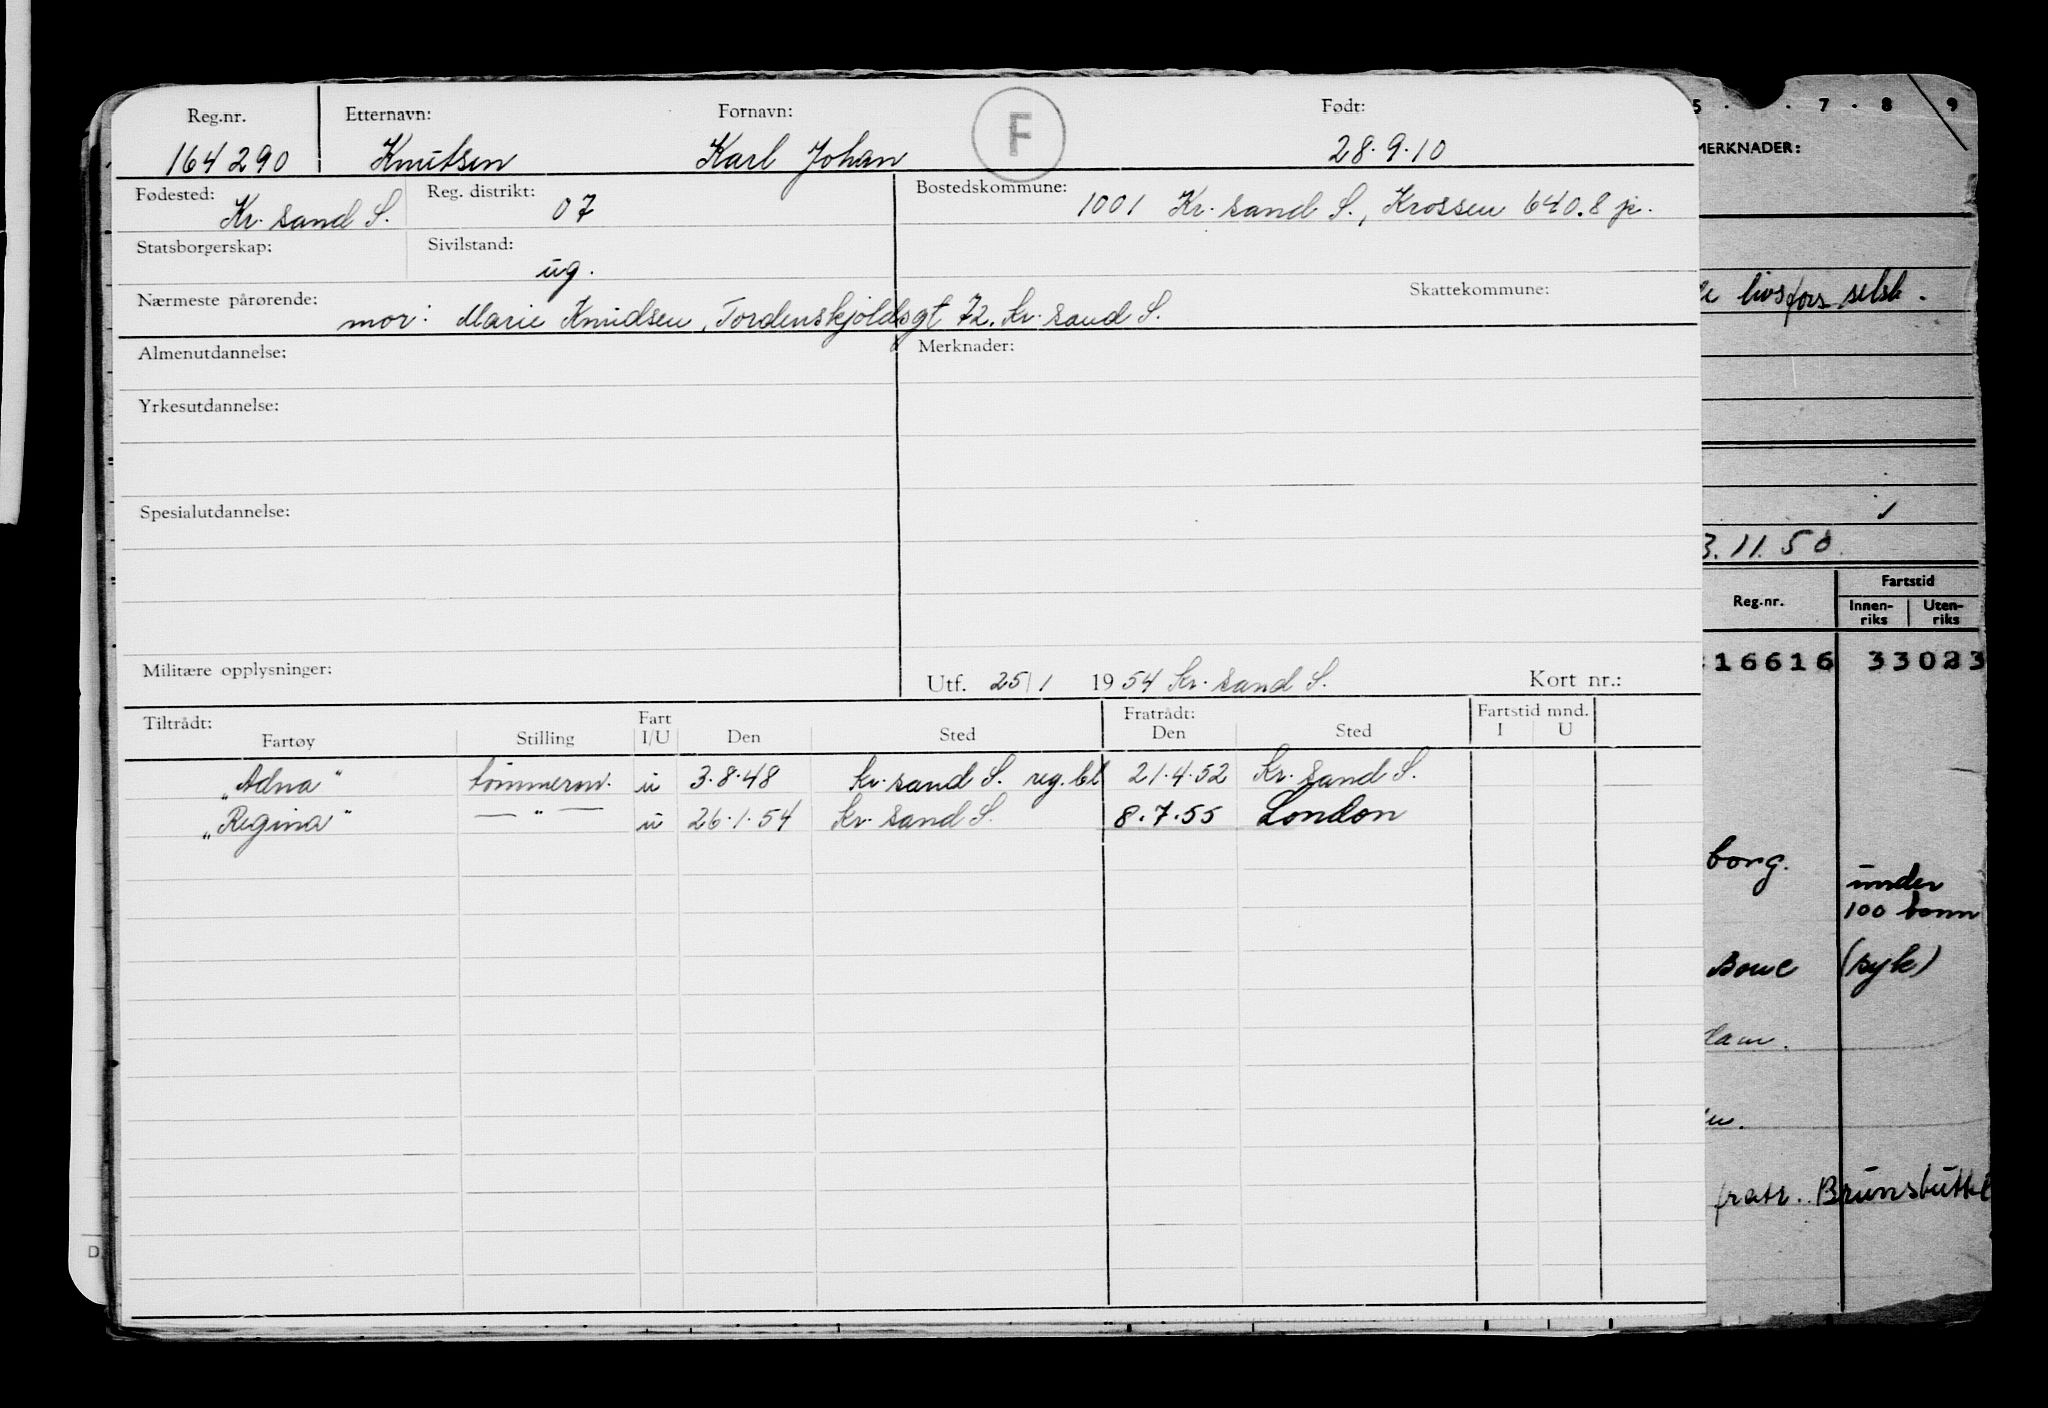 Reg.nr. Etternavn: Fornavn: F Født:
164290 Knutsen Karl Johan 28.9.10
Fødested: Reg. distrikt: Bostedskommune:
Kr. sand S. 07 1001 Kr. sand S., Krossen 640.8
Statsborgerskap: Sivilstand:
ug.
Nærmeste pårørende: Skattekommune:
mor: Marie Knudsen, Tordenskjoldsgt 72. Kr. sand S.
Almenutdannelse: Merknader:
Yrkesutdannelse:
Spesialutdannelse:
Militære opplysninger: Utf. 25/1 1954 Kr. sand S. Kort nr.:
Tiltrådt: Fart Fratrådt: Fartstid mnd.
Fartøy Stilling I/U Den Sted Den Sted I U
„Adna" tømmerm. u 3.8.48 Kr. sand S. reg. bl 21.4.52 Kr. sand S.
„Regina" — " — u 26.1.54 Kr. sand S. 8.7.55 London
D.
5 . . 7 . 8 9
MERKNADER:
livsfors selsk.
3.11.50.
Reg.nr. Fartstid
Innen-riks Uten-riks
16616 33023
borg. under
100 tonn
(syk)
dam.
fratr. Brunsbüttel